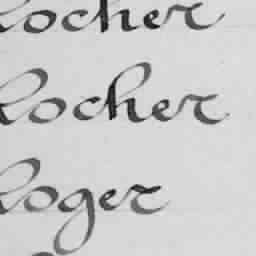 Rocher
Rocher
Roger